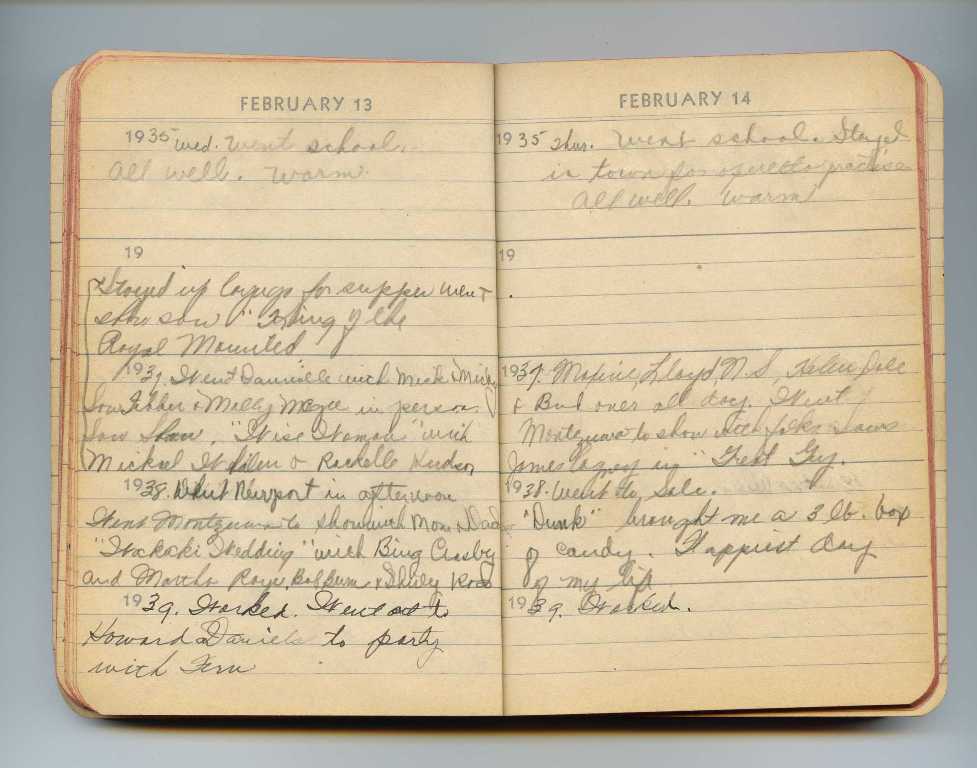 FEBRUARY 13
1935 Wed. Went school.
All well. Warm.
19
Stayed up for supper went
show saw "King of the
Royal Mounted
1937. Went Danville with Meek &
Saw Fibber & Molly McGee in person.
Saw Show, "Wise Woman" with
Mickael Whalen & Rochelle Hudson
1938. Newport in afternoon
Went Montezuma to show with Mom & Dad
"Wakaki Wedding" with Bing Crosby
and Martha Raye, Bob Burns & Shirley Ross
1939. Worked. Went out to
Howard Daniels to party
with Fern
FEBRUARY 14
1935 Thur. Went school. Stayed
in town for operetta practise
All well. Warm
19
1937. Maxine, Lloyd, N.S, Helen
& Bud over all day. Went
Montezuma to show with folks saw
James Cagney in "Great Guy.
1938. Went to Sale.
"Dunk" brought me a 3 lb. box
of candy. Happiest day
of my life
1939. Worked.